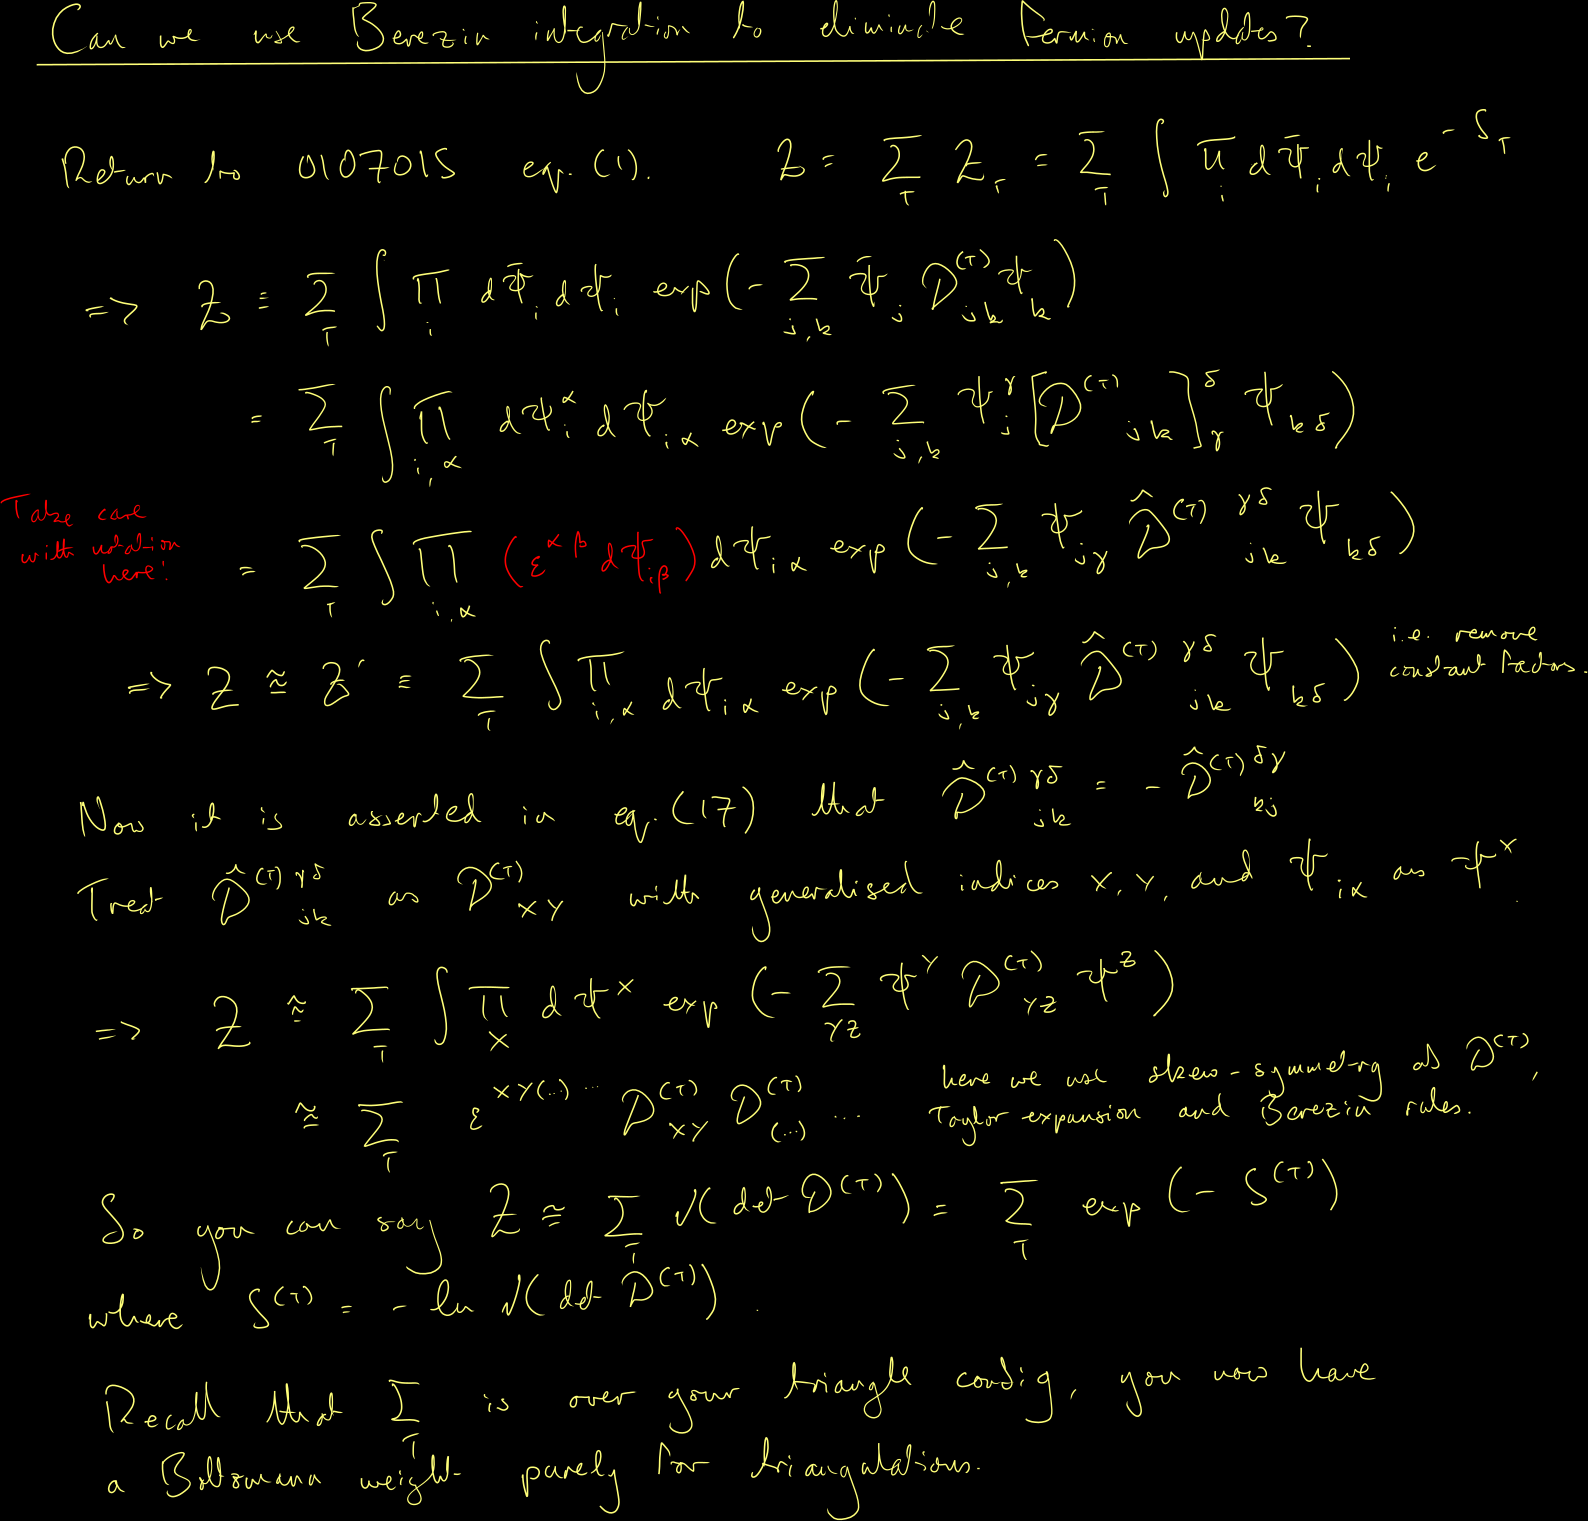 Can we use Berezin integration to eliminate Fermion updates?
Return to 0107015 eq. (1). Z = Σ_T Z_T = Σ_T ∫ Π_i dΨ̄_i dΨ_i e^{-S_T}
=> Z = Σ_T ∫ Π_i dΨ̄_i dΨ_i exp(- Σ_{j,k} Ψ̄_j D^{(T)}_{jk} Ψ_k)
= Σ_T ∫ Π_{i,α} dΨ_i^α dΨ_{iα} exp(- Σ_{j,k} Ψ_j^γ [D^{(T)}_{jk}]_γ^δ Ψ_{kδ})
Take care
with notation
here!
= Σ_T ∫ Π_{i,α} (ε^{αβ} dΨ_{iβ}) dΨ_{iα} exp(- Σ_{j,k} Ψ_{jγ} D̂^{(T)γδ}_{jk} Ψ_{kδ})
=> Z ≅ Z' ≡ Σ_T ∫ Π_{i,α} dΨ_{iα} exp(- Σ_{j,k} Ψ_{jγ} D̂^{(T)γδ}_{jk} Ψ_{kδ})
i.e. remove
constant factors.
Now it is asserted in eq. (17) that D̂^{(T)γδ}_{jk} = - D̂^{(T)δγ}_{kj}
Treat D̂^{(T)γδ}_{jk} as D^{(T)}_{XY} with generalised indices X, Y, and Ψ_{iα} as Ψ^X.
=> Z ≅ Σ_T ∫ Π_X dΨ^X exp(- Σ_{YZ} Ψ^Y D^{(T)}_{YZ} Ψ^Z)
≅ Σ_T ε^{XY(...)...} D^{(T)}_{XY} D^{(T)}_{(...)} ...
here we use skew-symmetry of D^{(T)},
Taylor expansion and Berezin rules.
So you can say Z ≅ Σ_T √(det D^{(T)}) = Σ_T exp(- S^{(T)})
where S^{(T)} = - ln √(det D^{(T)}).
Recall that Σ_T is over your triangle config, you now have
a Boltzmann weight purely for triangulations.